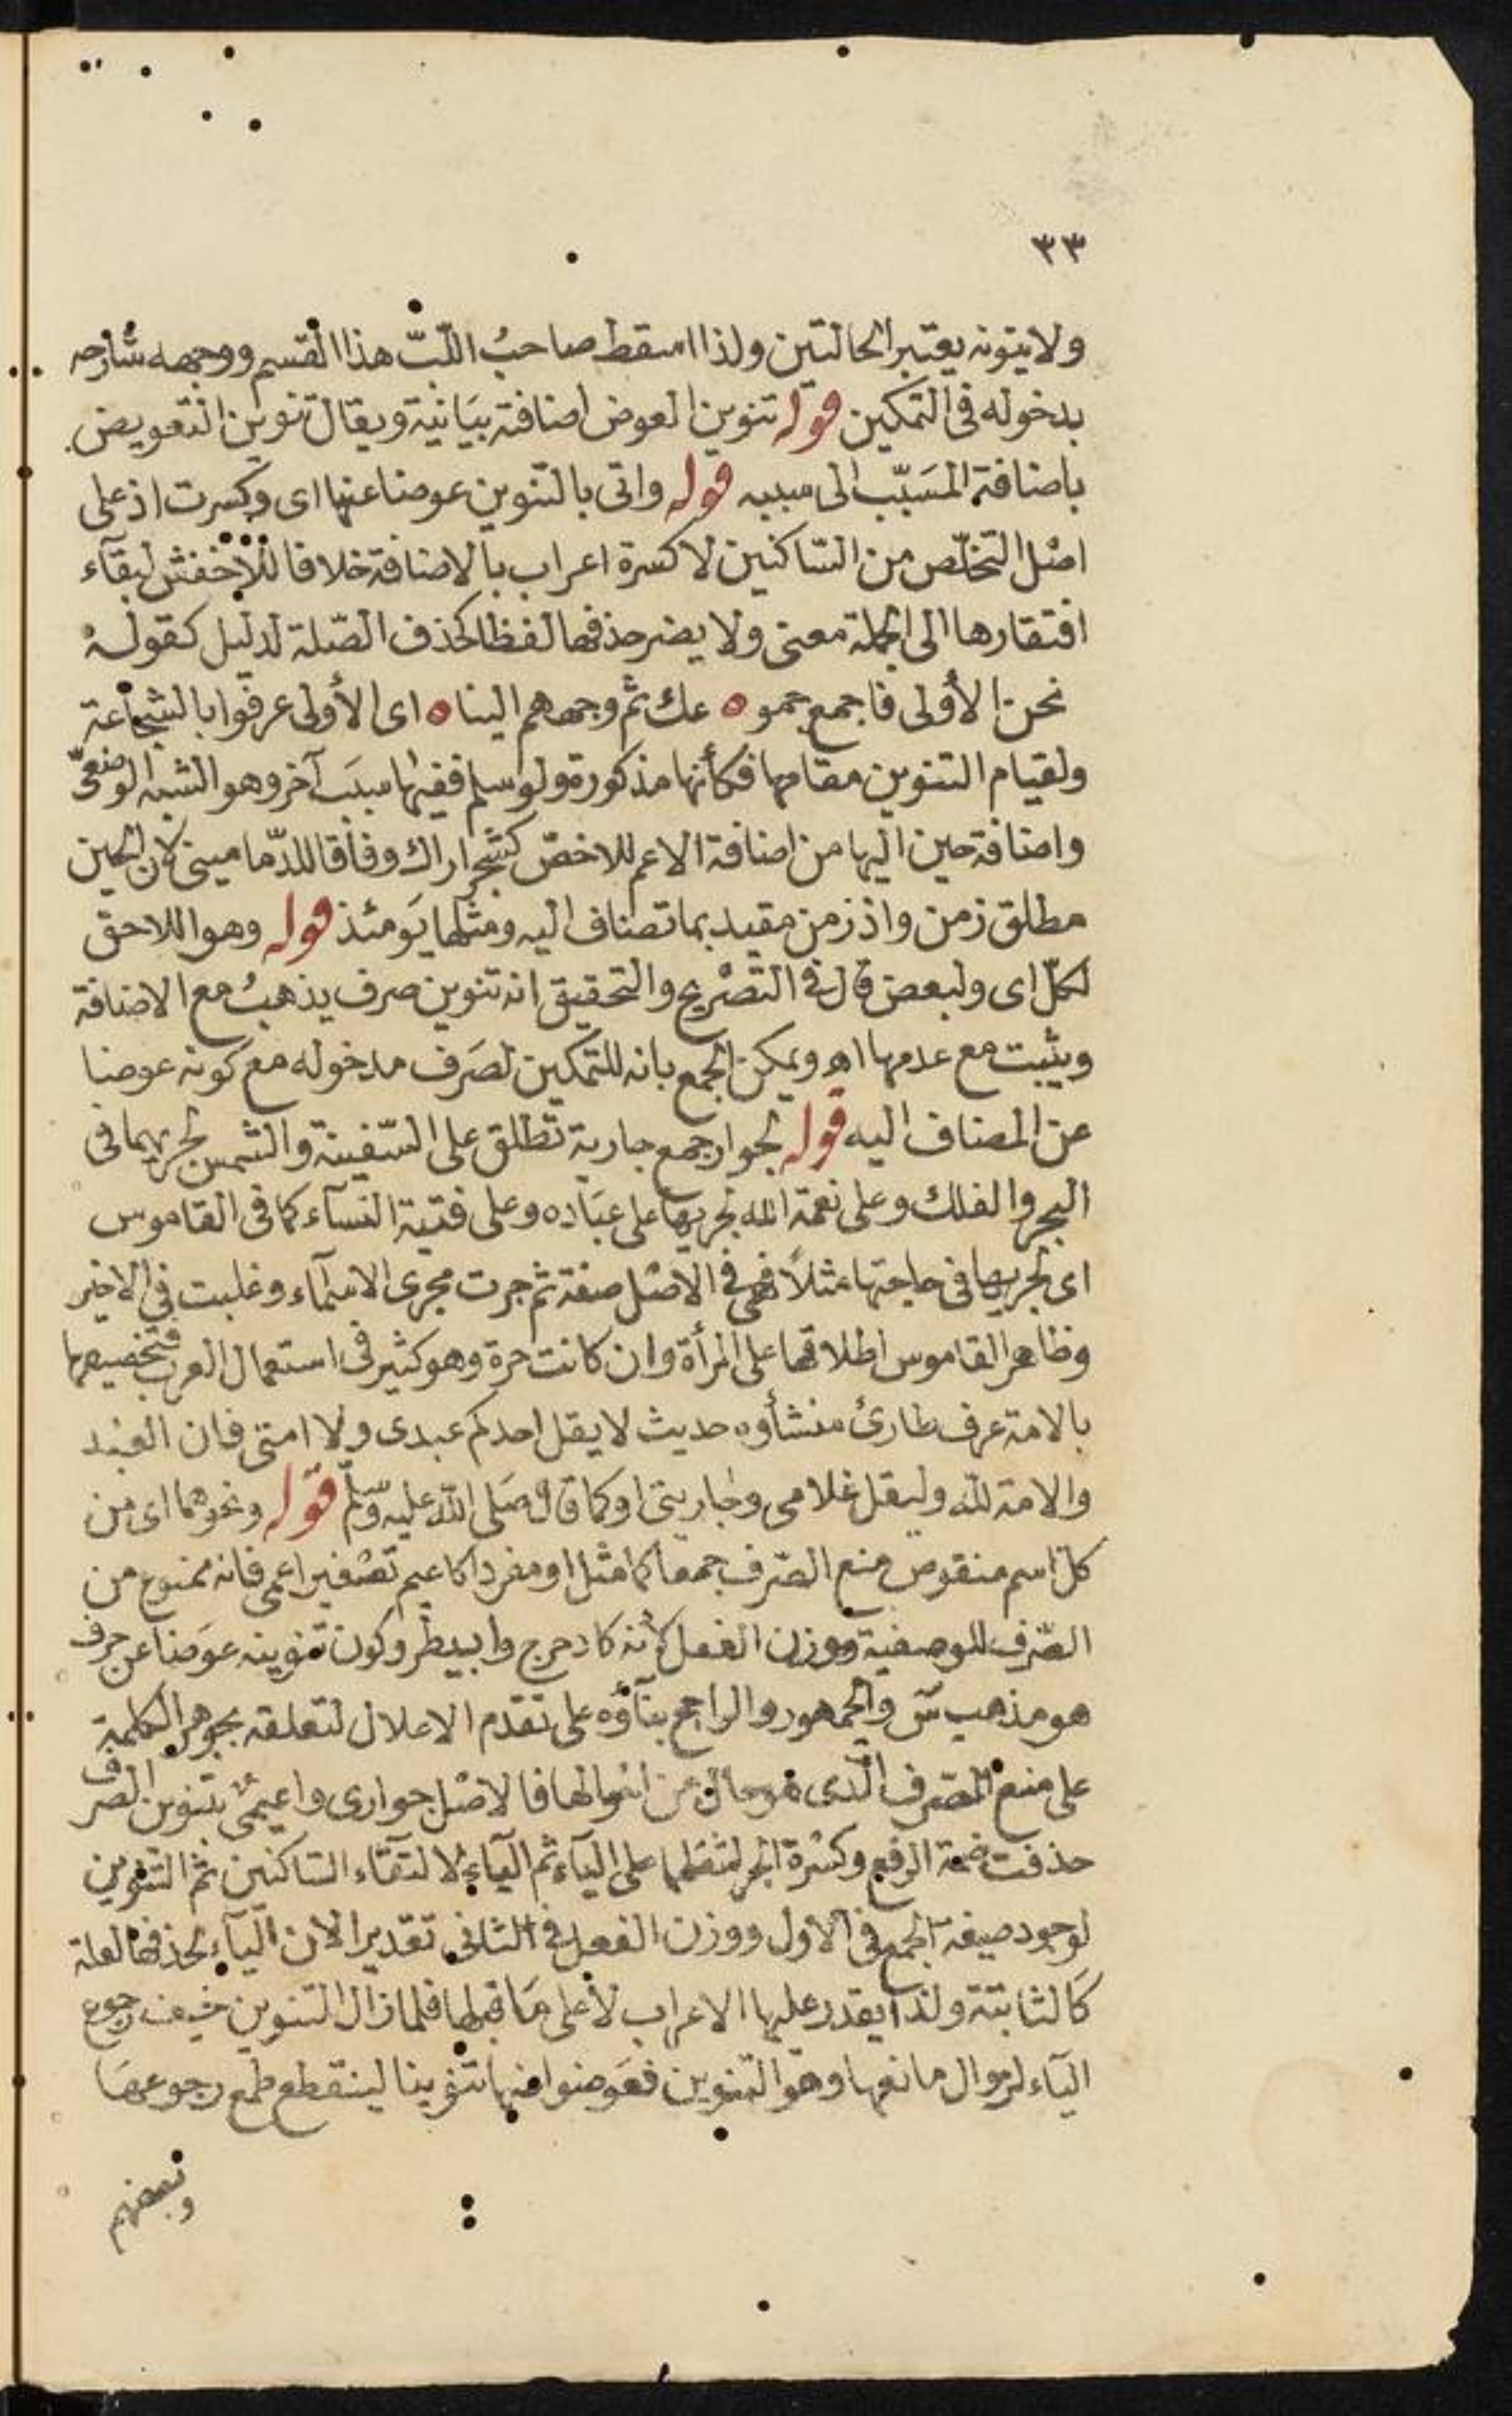 ٣٣
ولا ينونه يعتبر الحالتين ولذا اسقط صاحبُ اللّبّ هذا القسم ووجهه شارحه
بدخوله فى التمكين قوله تنوين العوض اضافته بيَانية ويقال تنوين التعويض
باضافة المسَبّب الى سببه قوله واتى بالتنوين عوضا عنها اى وكسرت اذ على
اصْل التخلّص من السّاكنين لا كسرة اعراب بالاضافة خلافا للاخفش لبقآء
افتقارها الى الجملة معنى ولا يضر حذفها لفظا كحذف الصّلة لدليل كقوله
نحن الأولى فاجمع جمو ٥ عك ثم وجههم الينا ٥ اى الأولى عرفوا بالشجاعة
ولقيام التنوين مقامها فكأنها مذكورة ولو سلم ففيها سبَب آخر وهو الشبه الوضعىّ
واضافة حين اليها من اضافة الاعم للاخصّ كشجر اراك وفاقا للدّمامينى لان الحين
مطلق زمن واذ زمن مقيد بما تضاف اليه ومثلها يَومئذ قوله وهو اللاحق
لكلّ اى ولبعض قال فى التصْريح والتحقيق انه تنوين صرف يذهبُ مع الاضافة
ويثبت مع عدمها اهـ ويمكن الجمع بانه للتمكين لصَرف مدخوله مع كونه عوضا
عن المضاف اليه قوله لجوار جمع جارية تطلق على السّفينة والشمس لجريهما فى
البحر والفلك وعلى نعمة الله لجريها على عبَاده وعلى فتية النسآء كما فى القاموس
اى لجريها فى حاجتها مثلاً فهى فى الاصْل صفة ثم جرت مجرى الاسمآء وغلبت فى الاخير
وظاهر القاموس اطلاقها على المرأة وان كانت حرة وهو كثير فى استعمال العرب فتخصيصها
بالامة عرف طارئ منشأوه حديث لا يقل احدكم عبدى ولا امتى فان العبْد
والامة للّٰه وليقل غلامى وجاريتى او كما قال صَلى اللّٰه عليه وسلم قوله ونحوهما اى من
كل اسم منقوص منع الصّرف جمعا كما مثل او مفردا كاعيم تصْغير اعمى فانه ممنوع من
الصّرف للوصفية ووزن الفعل لأنه كادحرج وابيطر وكون تنوينه عوَضا عن حرف
هو مذهب سَ والجمهور والراجح بنآؤه على تقدم الاعلال لتعلقه بجوهر الكلمة
على منع الصّرف الّذى هو حال من احْوالها فالاصْل جوارى واعيمى بتنوين الصرف
حذفت ضمة الرفع وكسْرة الجر لثقلها على اليآء ثم اليآء لالتقآء السّاكنين ثم التنوين
لوجود صيغة الجمع فى الاول ووزن الفعل فى الثانى تقديرا لان اليآء لحذفها لعلة
كَالثابتة ولذا يقدر عليها الاعراب لا على مَا قبلها فلما زال التنوين خيف رجوع
اليآء لزوال مانعها وهو التنوين فعَوضوا منها تنوينا لينقطع طمع رجوعهَا
وبعضهم